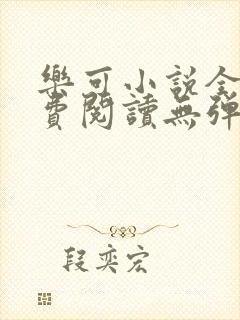 樂可小說全
費閱讀無彈
段奕宏